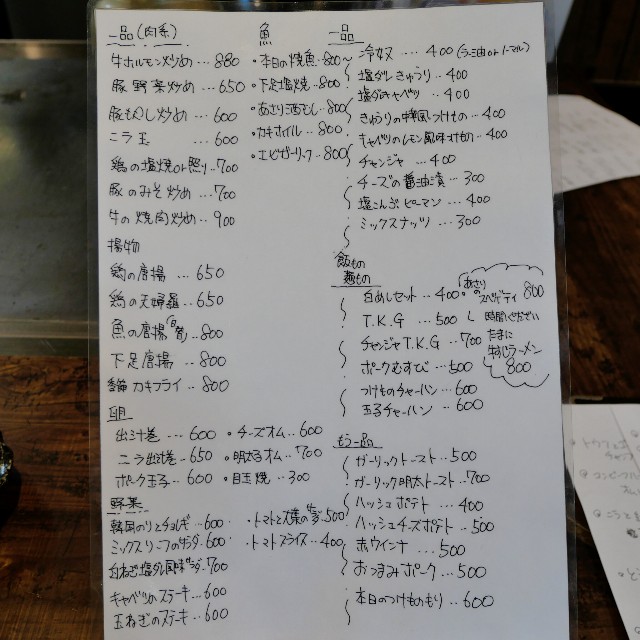 一品(肉系)
牛ホルモン炒め…880
豚野菜炒め…650
豚もやし炒め…600
ニラ玉…600
鶏の塩焼or照り…700
豚のみそ炒め…700
牛の焼肉炒め…900
揚物
鶏の唐揚…650
鶏の天婦羅…650
魚の唐揚…800
下足唐揚…800
カキフライ…800
卵
出汁巻…600
ニラ出汁巻…650
ポーク玉子…600
・チーズオム…600
・明太オム…700
・目玉焼…300
野菜
韓国のりとチョレギ…600
ミックスリーフのサラダ…600
白ねぎ塩ダレ風サラダ…700
キャベツのステーキ…600
玉ねぎのステーキ…600
・トマトと大葉のサラダ…500
・トマトスライス…400
魚
・本日の焼魚…800〜
・下足塩焼…800
・あさり酒むし…800
・カキオイル…800
・エビガーリック…800
一品
冷奴…400(ラー油orノーマル)
塩ダレきゅうり…400
塩ダレキャベツ…400
きゅうりの中華風つけもの…400
キャベツのレモン風味つけもの…400
チャンジャ…400
チーズの醤油漬…300
塩こんぶピーマン…400
ミックスナッツ…300
飯もの
麺もの
白めしセット…400
T.K.G…500
チャンジャT.K.G…700
ポークむすび…500
つけものチャーハン…600
玉子チャーハン…600
あさりのスパゲティ 800
時間ください
たまに
牛すじラーメン
800
もう一品
ガーリックトースト…500
ガーリック明太トースト…700
ハッシュポテト…400
ハッシュチーズポテト…500
赤ウインナ…500
おつまみポーク…500
本日のつけものもり…600